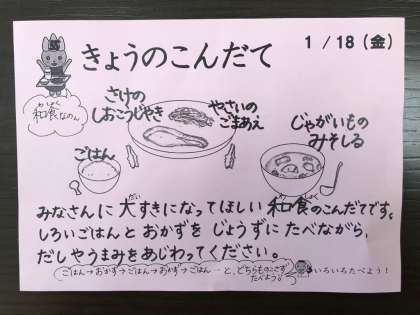 きょうのこんだて
1/18(金)
わしょく
和食なのん
さけの
しおこうじやき
やさいの
ごまあえ
じゃがいもの
みそしる
ごはん
みなさんに大すきになってほしい和食のこんだてです。
しろいごはんとおかずをじょうずにたべながら、
だしやうまみをあじわってください。
ごはん→おかず→ごはん→おかず→ごはん…と、どちらものこさず
たべよう。
いろいろたべよう!